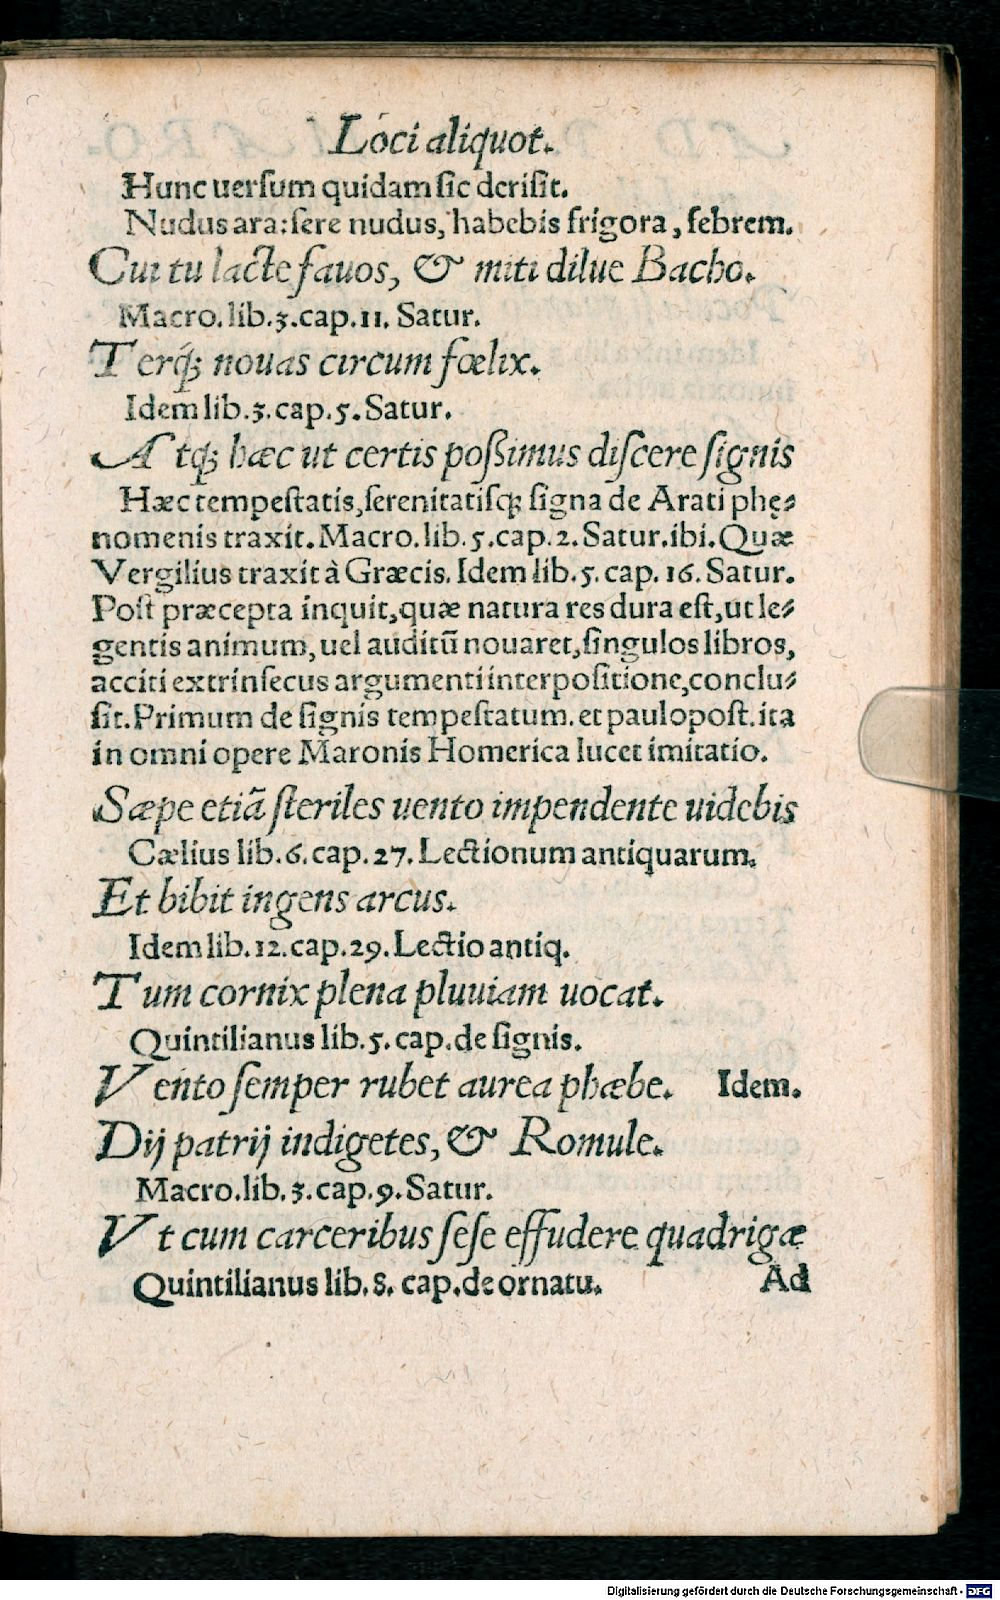 Loci aliquot.
Hunc uersum quidam sic derisit.
Nudus ara: sere nudus, habebis frigora, febrem.
Cui tu lacte fauos, & miti dilue Bacho.
Macro. lib. 3. cap. 11. Satur.
Terq; nouas circum fœlix.
Idem lib. 3. cap. 5. Satur.
Atq; hæc ut certis possimus discere signis
Hæc tempestatis, serenitatisq; signa de Arati phę⸗
nomenis traxit. Macro. lib. 5. cap. 2. Satur. ibi. Quæ
Vergilius traxit à Græcis. Idem lib. 5. cap. 16. Satur.
Post præcepta inquit, quæ natura res dura est, ut le⸗
gentis animum, uel auditū nouaret, singulos libros,
acciti extrinsecus argumenti interpositione, conclu⸗
sit. Primum de signis tempestatum. et paulo post. ita
in omni opere Maronis Homerica lucet imitatio.
Sæpe etiā steriles uento impendente uidebis
Cælius lib. 6. cap. 27. Lectionum antiquarum.
Et bibit ingens arcus.
Idem lib. 12. cap. 29. Lectio antiq.
Tum cornix plena pluuiam uocat.
Quintilianus lib. 5. cap. de signis.
Vento semper rubet aurea phæbe. Idem.
Dij patrij indigetes, & Romule.
Macro. lib. 3. cap. 9. Satur.
Vt cum carceribus sese effudere quadrigæ
Quintilianus lib. 8. cap. de ornatu. Ad
Digitalisierung gefördert durch die Deutsche Forschungsgemeinschaft - DFG